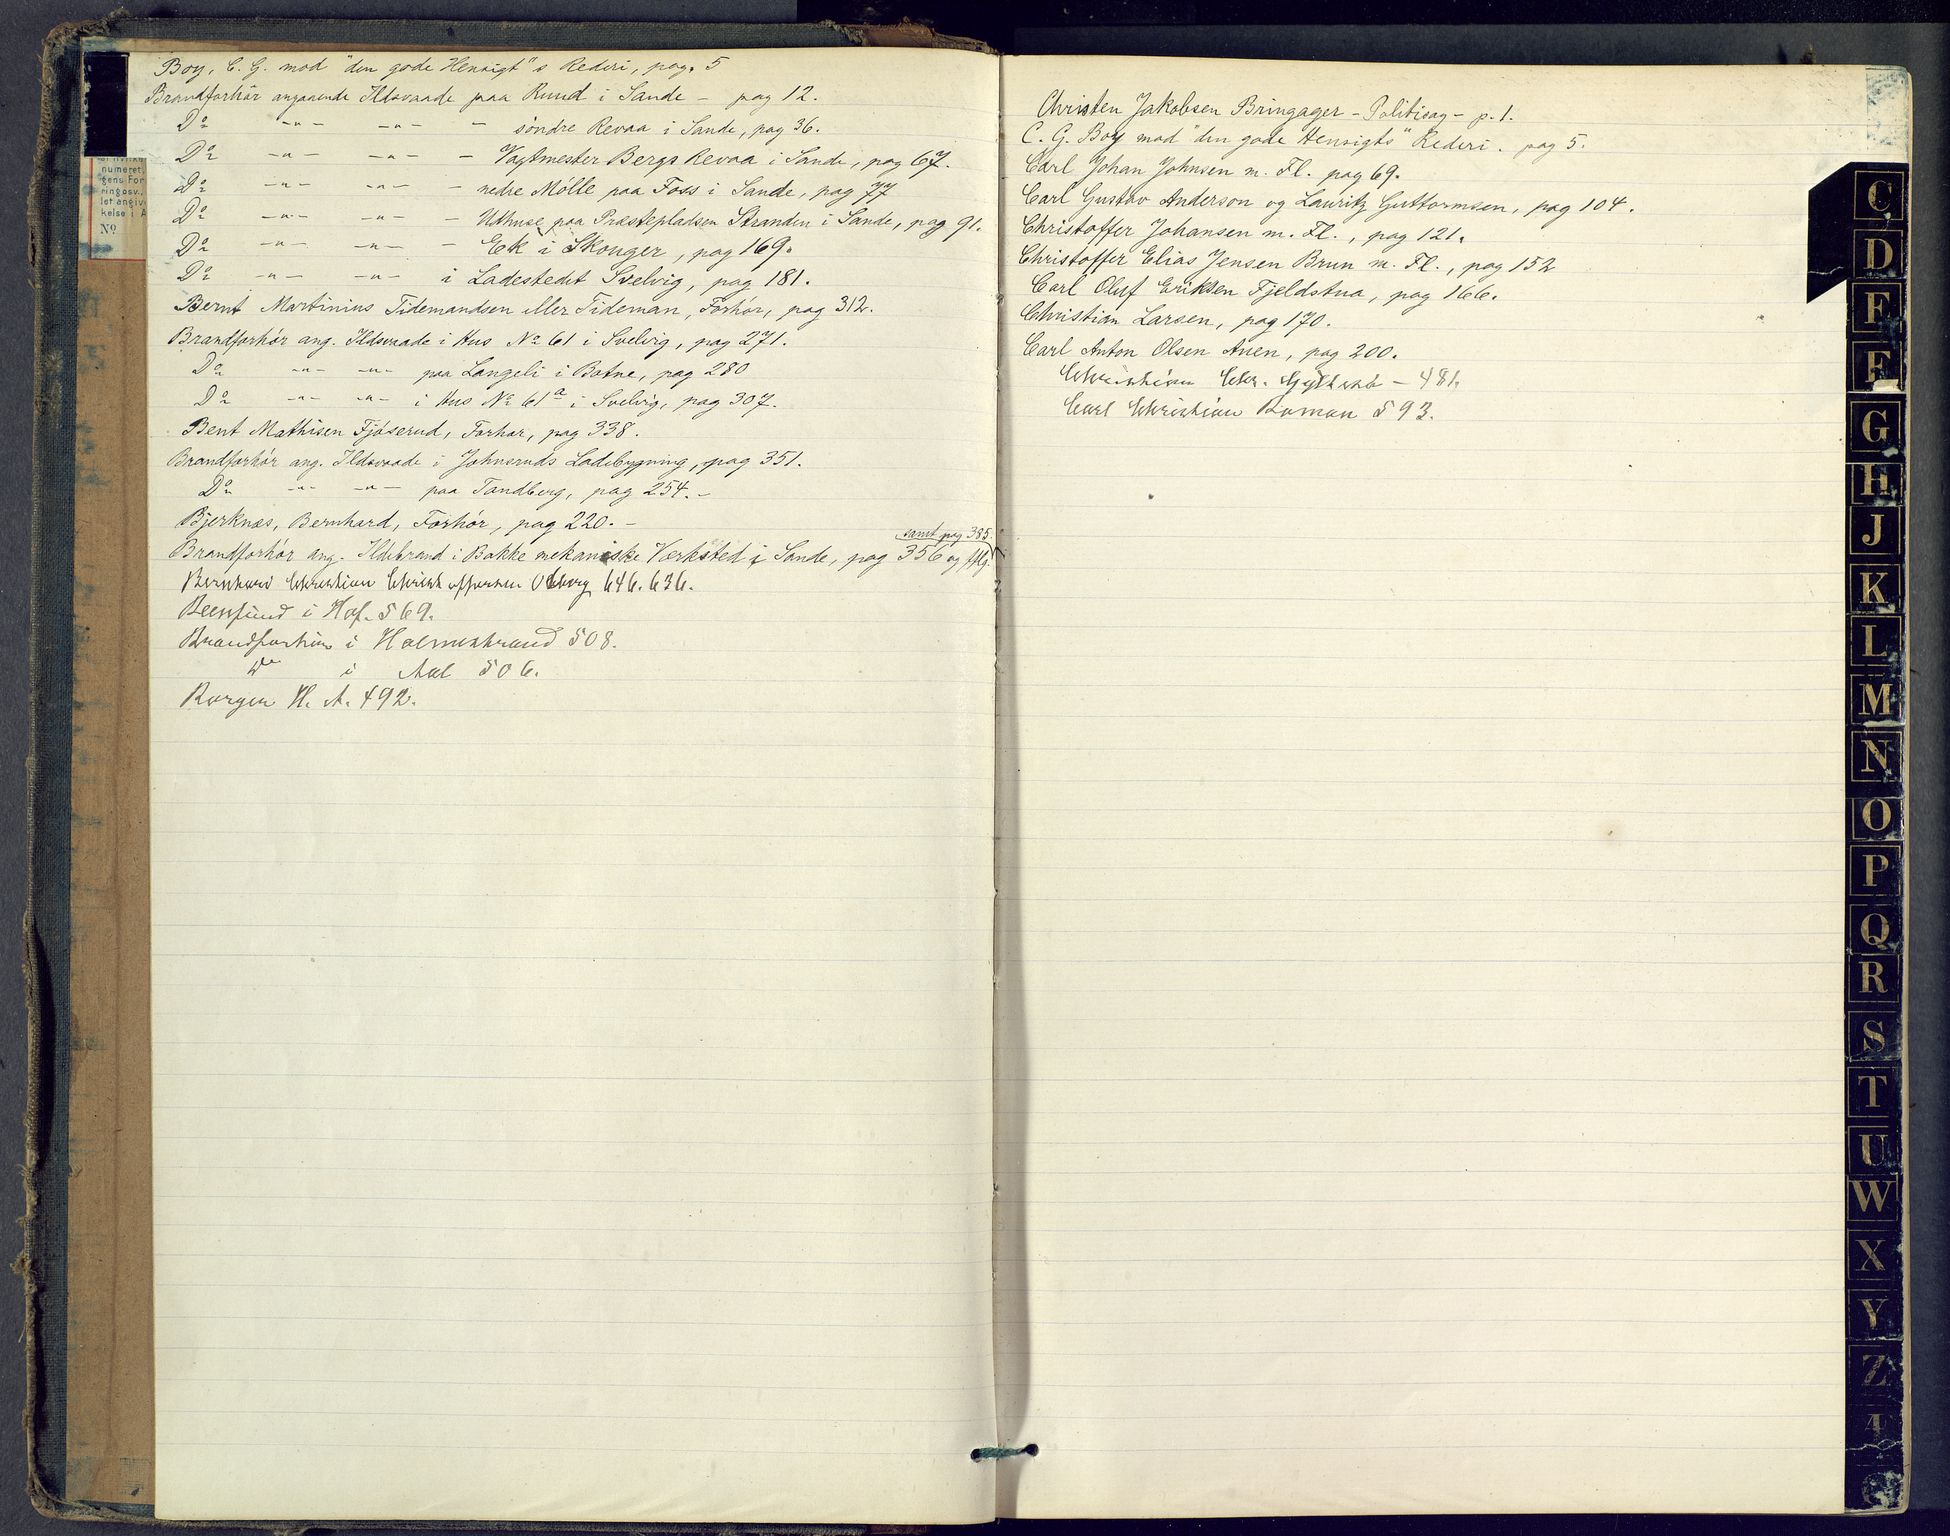 Boy, C. G. mod "den gode Hensigt"s Rederi, pag. 5
Brandforhör angaaende Ildsvaade paa Ruud i Sande - pag 12.
Do -"- -"- - söndre Revaa i Sande, pag 36.
Do -"- -"- - Vagtmester Bergs Revaa i Sande, pag 67.
Do -"- -"- - nedre Mölle paa Foss i Sande, pag 77
Do -"- -"- - Udhuse paa Præstepladsen Stranden i Sande, pag 91.
Do -"- -"- - Eek i Skouger, pag 169.
Do -"- -"- i Ladestedet Svelvig, pag 181.
Bernt Martinius Tidemandsen eller Tideman, Forhör, pag 312.
Brandforhör ang. Ildsvaade i Hus No 61 i Svelvig, pag 271.
Do -"- -"- paa Langeli i Botne, pag 280
Do -"- -"- i Hus No 61a i Svelvig, pag 307.
Bent Mathisen Fjöserud, Forhör, pag 338.
Brandforhör ang. Ildsvaade i Johnsruds Ladebygning, pag 351.
Do -"- -"- paa Tandberg, pag 254. -
Bjerknæs, Bernhard, Forhör, pag 220. -
samt pag 385.
Brandforhör ang. Ildebrand i Bakke mekaniske Værksted i Sande, pag 356 og fölg.
Bernhard Christian Christoffersen 646. 636.
i Hof. 569.
i Holmestrand 508.
Do i 506.
H. A. 492.
Christen Jakobsen Bringager - Politisag - p. 1.
C. G. Boy mod "den gode Hensigts" Rederi. pag 5.
Carl Johan Johnsen m. Fl. pag 69.
Carl Gustav Anderson og Lauritz Guttormsen, pag 104.
Christoffer Johansen m. Fl., pag 121.
Christoffer Elias Jensen Brun m. Fl., pag 152
Carl Oluf Eriksen Fjeldstua, pag 166.
Christian Larsen, pag 170.
Carl Anton Olsen Auen, pag 200.
Christian Chr. - 481.
Carl Christian 593.
numeret,
gens For
ringosv.,
let angiv
kelse i A
No
C
D
E
F
G
H
J
K
L
M
N
O
P
Q
R
S
T
U
W
X
Y
Z